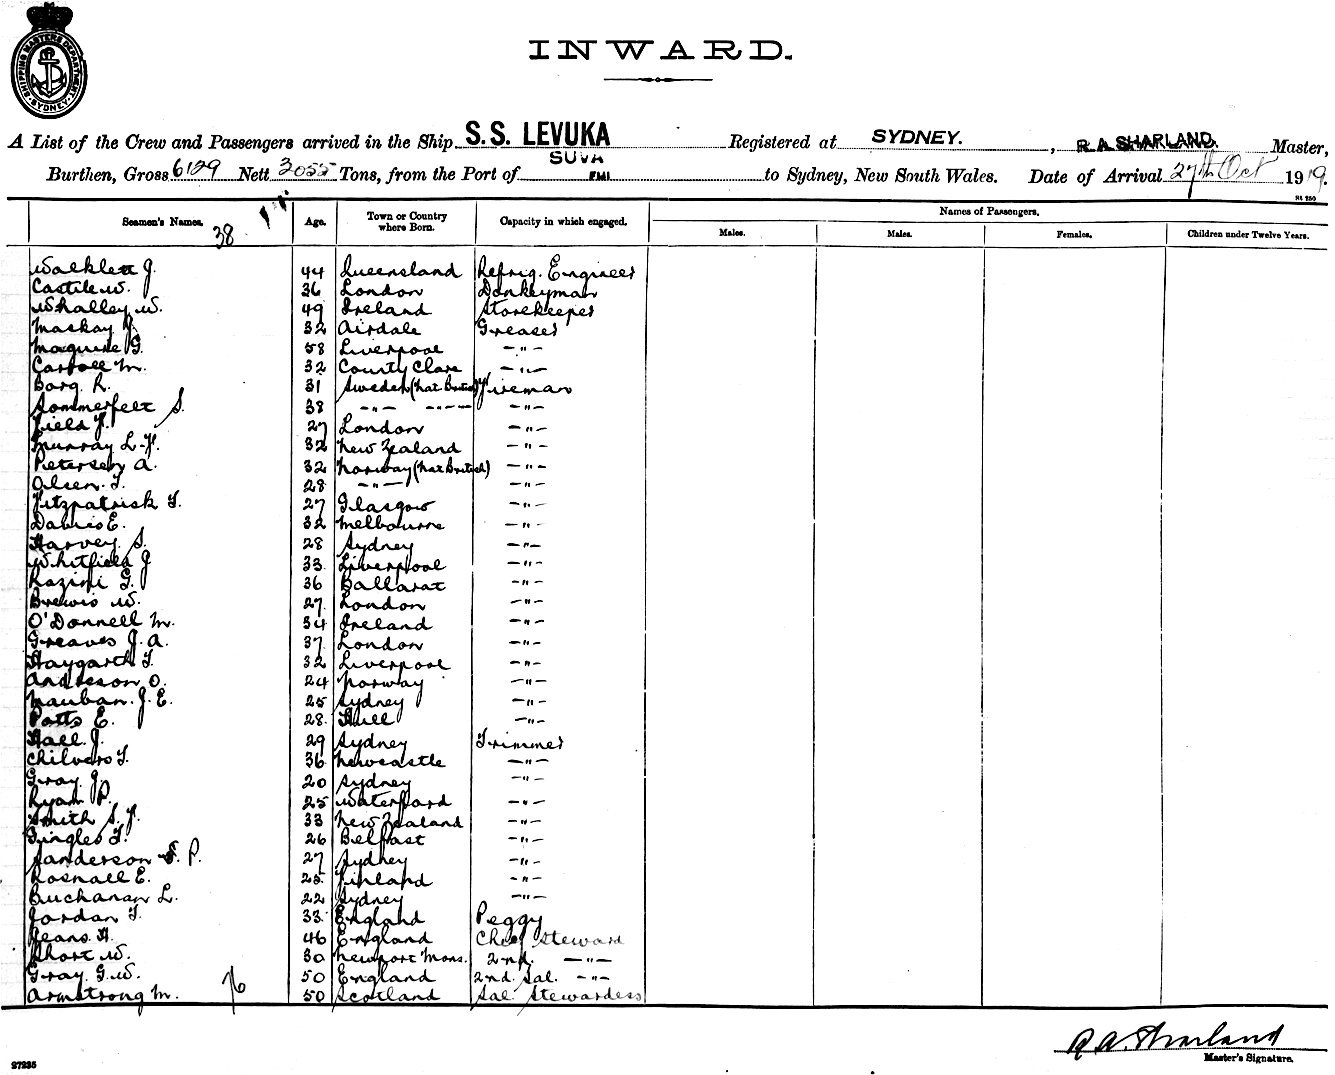 SHIPPING MASTERS DEPARTMENT SYDNEY
INWARD.
A List of the Crew and Passengers arrived in the Ship S.S. LEVUKA Registered at SYDNEY. , R. A. SHARLAND. Master,
Burthen, Gross 6129 Nett 3055 Tons, from the Port of SUVA FIJI to Sydney, New South Wales. Date of Arrival 27th Oct 1919.
Seamen's Names. Age. Town or Country where Born. Capacity in which engaged. Names of Passengers.
38
Males. Males. Females. Children under Twelve Years.
Walklett J. 44 Queensland Refrig. Engineer
Castle W. 36 London Donkeyman
Whalley W. 49 Ireland Storekeeper
Mackay J. 32 Airdale Greaser
Maguire G. 58 Liverpool -"-
Carroll M. 32 County Clare -"-
Borg R. 31 Sweden (Nat. British) Fireman
Sommerfelt S. 38 -"- -"- -"-
Field F. 27 London -"-
Murray L. F. 32 New Zealand -"-
Petersen A. 32 Norway (Nat British) -"-
Olsen T. 28 -"- -"-
Fitzpatrick T. 27 Glasgow -"-
Davies E. 32 Melbourne -"-
Harvey S. 28 Sydney -"-
Whitfield J 33 Liverpool -"-
G. 36 Ballarat -"-
Brewis W. 27 London -"-
O'Donnell M. 34 Ireland -"-
Greaves J. A. 37 London -"-
Haygarth T. 32 Liverpool -"-
Anderson O. 24 Norway -"-
Mauban J. E. 25 Sydney -"-
Potts E. 28 Hull -"-
Hall J. 29 Sydney Trimmer
Chilvers T. 36 Newcastle -"-
Gray J. 20 Sydney -"-
Ryan P. 25 Waterford -"-
Smith S. F. 33 New Zealand -"-
Gingles T. 26 Belfast -"-
Sanderson F. P. 27 Sydney -"-
Rosnall E. 25 Finland -"-
Buchanan L. 22 Sydney -"-
Jordan T. 33 England Peggy
Jeans H. 46 England Chief Steward
Short W. 30 Newport Mons. 2nd. -"-
Gray G. W. 50 England 2nd. Sal. -"-
Armstrong M. 76 50 Scotland Sal. Stewardess
R. A. Sharland
Master's Signature.
27235